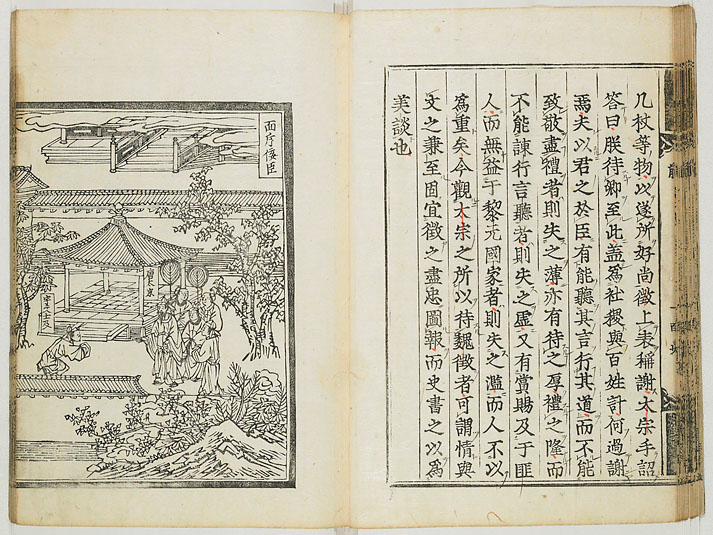 几杖等物以遂所好尚徵上表稱謝太宗手詔
答曰朕待卿至此盖爲社稷與百姓計何過謝
焉夫以君之於臣有能聽其言行其道而不能
致敬盡禮者則失之薄亦有待之厚禮之隆而
不能諫行言聽者則失之虛又有賞賜及于匪
人而無益于黎元國家者則失之濫而人不以
爲重矣今觀太宗之所以待魏徵者可謂情與
文之兼至固宜徵之盡忠圖報而史書之以爲
美談也
面斥佞臣
唐太宗
宇文士及